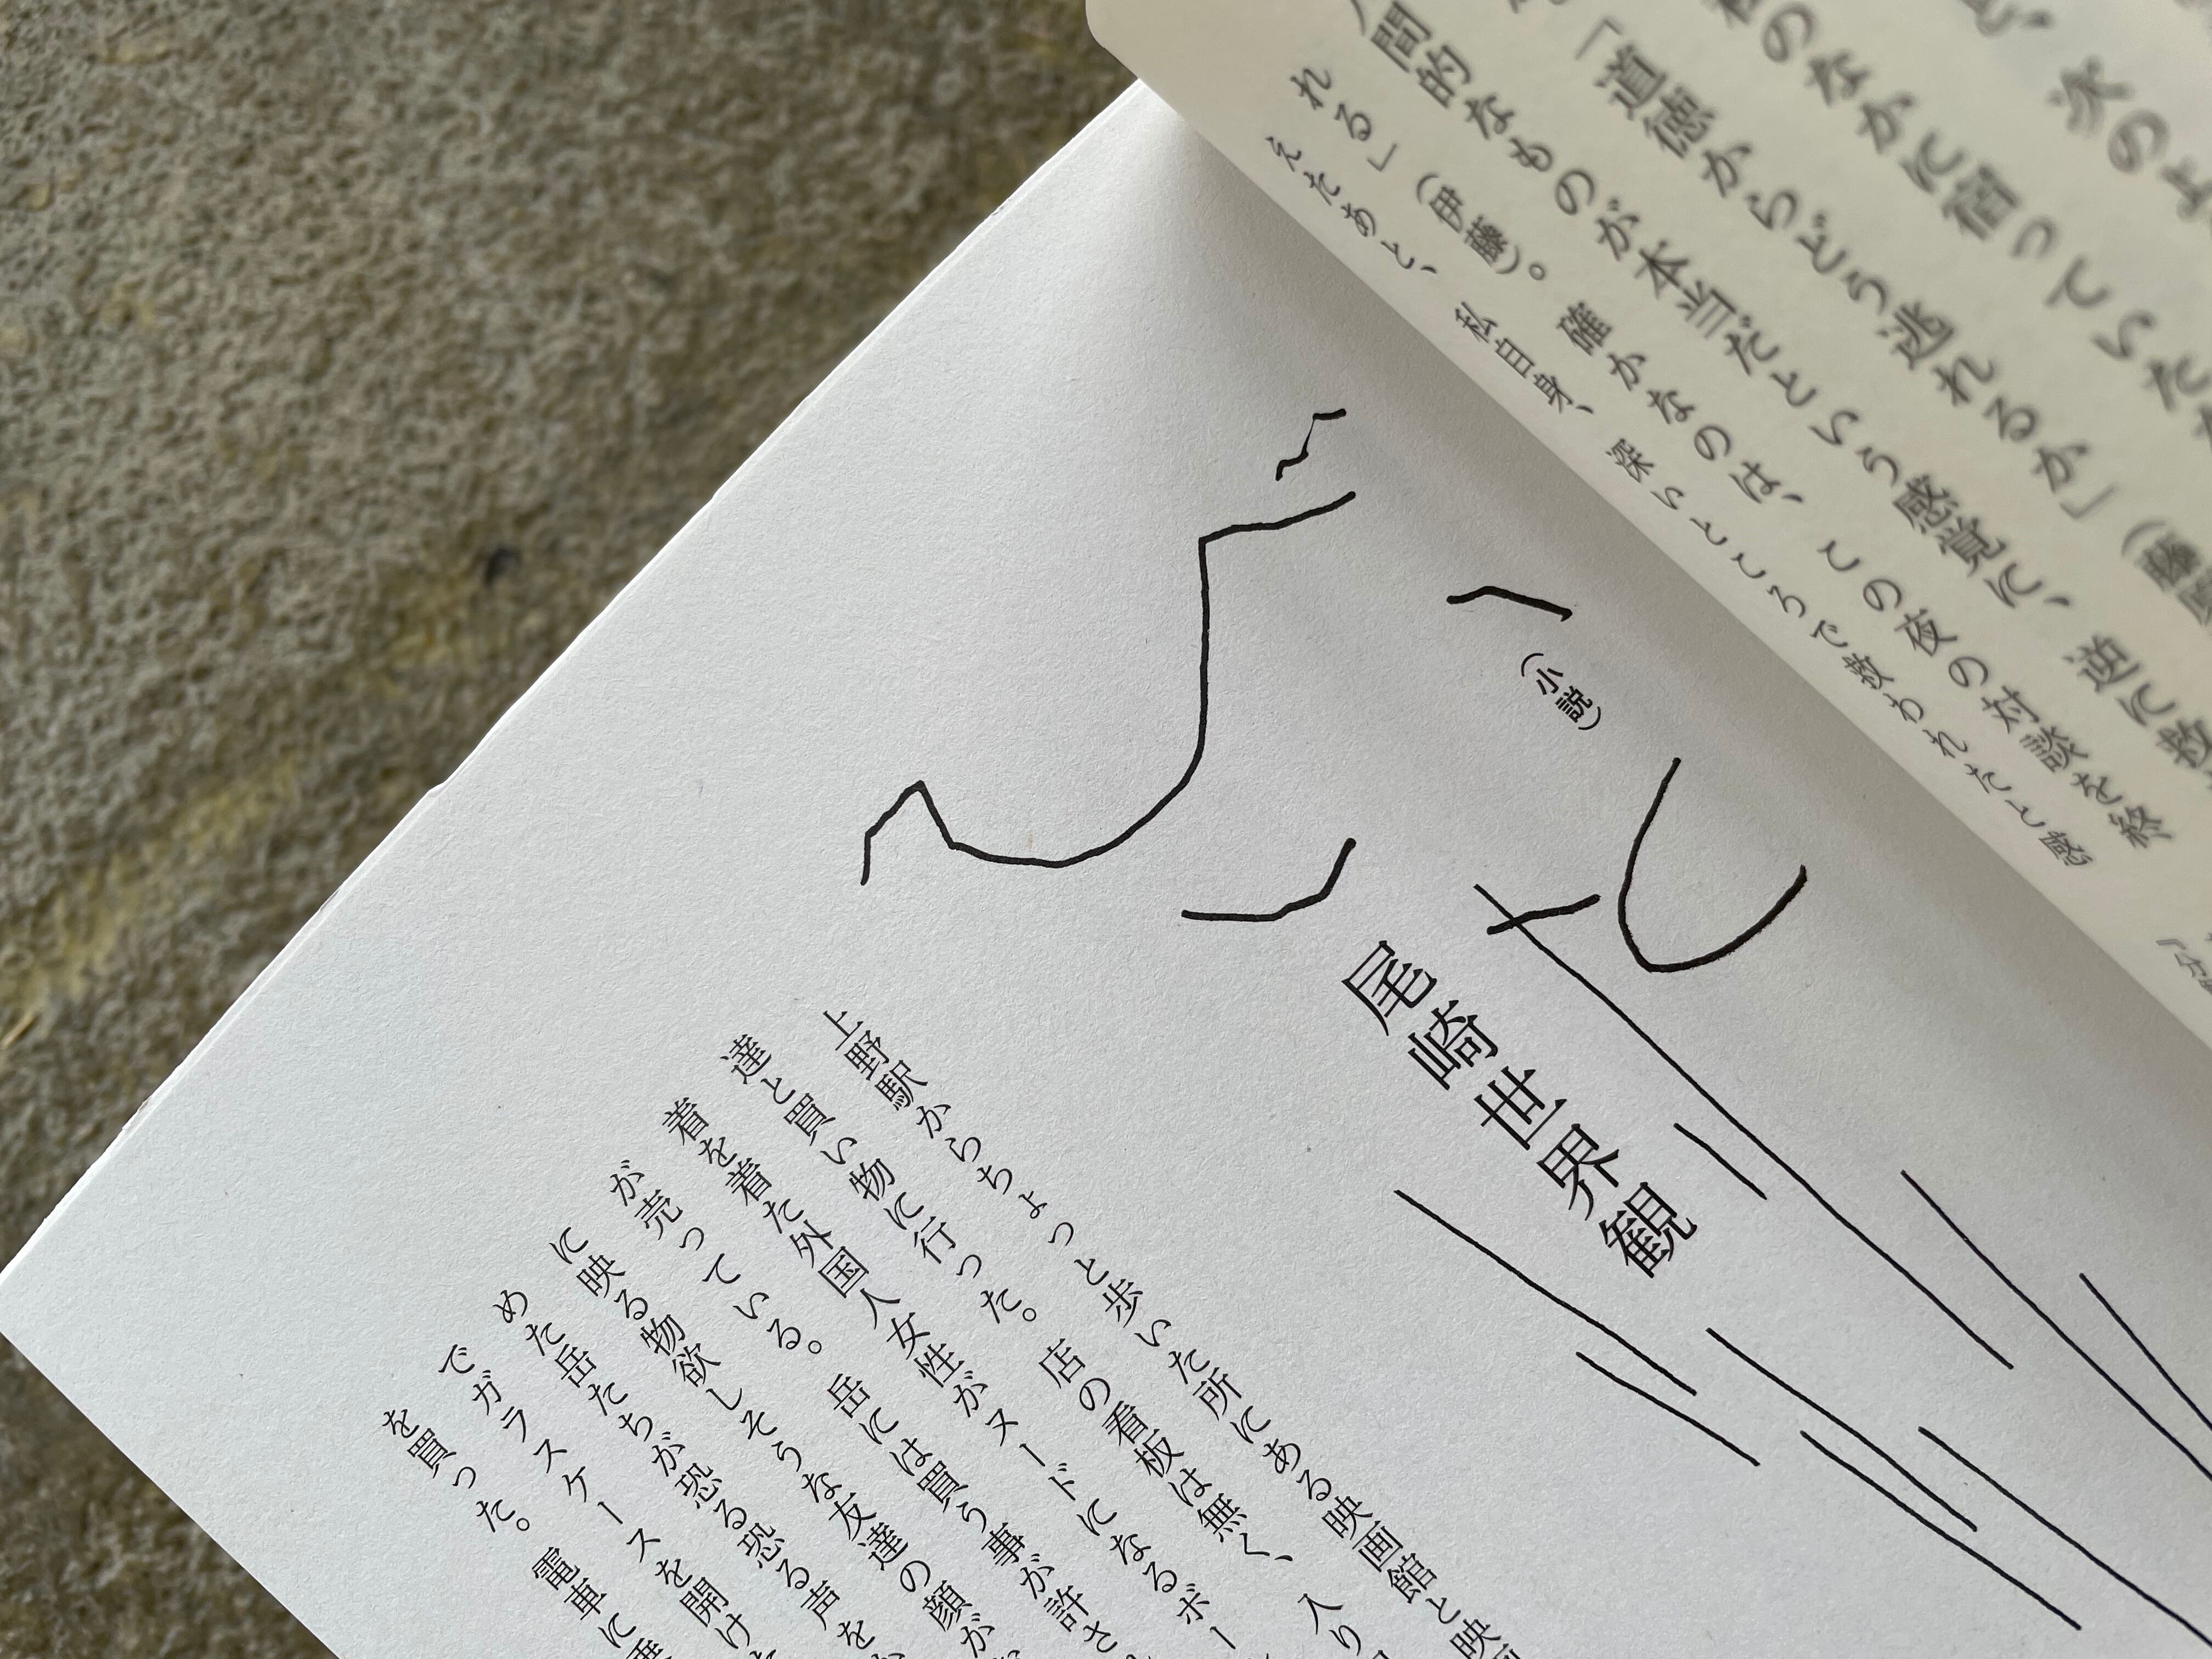 次のよ
のなかに宿っていた
「道徳からどう逃れるか」（藤
間的なものが本当だという感覚に、逆に救
れる」（伊藤）。確かなのは、この夜の対談を終
えたあと、私自身、深いところで救われたと感
（小説）
尾崎世界観
上野駅からちょっと歩いた所にある映画館と映
達と買い物に行った。店の看板は無く、入り
着を着た外国人女性がヌードになるボー
が売っている。岳には買う事が許さ
に映る物欲しそうな友達の顔が
めた岳たちが恐る恐る声を
でガラスケースを開け
を買った。電車に